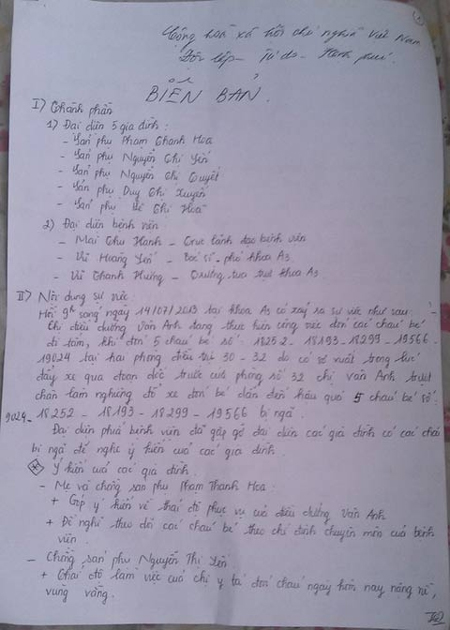 Cộng hoà xã hội chủ nghĩa Việt Nam
Độc lập - Tự do - Hạnh phúc.
BIÊN BẢN.
I) Thành phần
1) Đại diện 5 gia đình:
- Sản phụ Phạm Thanh Hoa
- Sản phụ Nguyễn Thị Yến
- Sản phụ Nguyễn Thị Quyết
- Sản phụ Duy Thị Xuyến
- Sản phụ Thị Hoà
2) Đại diện bệnh viện
- Mai Thu Hạnh - Trực lãnh đạo bệnh viện
- Vũ Hoàng Yến - Bác sĩ - phó khoa A5
- Vũ Thanh Hưng - Trưởng tua trực khoa A5
II) Nội dung sự việc
Hồi 9h sáng ngày 14/07/2013 tại khoa A5 có xảy ra sự việc như sau:
Chị điều dưỡng Vân Anh đang thực hiện công việc đón các cháu bé
đi tắm, khi đón 5 cháu bé số: 18252 - 18193 - 18299 - 19566 -
19024 tại hai phòng điều trị 30 - 32 do có sơ xuất trong lúc
đẩy xe qua đoạn dốc trước cửa phòng số 32 chị Vân Anh trượt
chân làm nghiêng đổ xe đón bé dẫn đến hậu quả 5 cháu bé số:
9024 - 18252 - 18193 - 18299 - 19566 bị ngã.
Đại diện phía bệnh viện đã gặp gỡ đại diện các gia đình có các cháu
bị ngã để nghe ý kiến của các gia đình.
* Ý kiến của các gia đình.
- Mẹ và chồng sản phụ Phạm Thanh Hoa:
+ Góp ý kiến về thái độ phục vụ của điều dưỡng Vân Anh
+ Đề nghị theo dõi các cháu bé theo chỉ định chuyên môn của bệnh
viện.
- Chồng sản phụ Nguyễn Thị Yến
+ Thái độ làm việc của chị y tá đón cháu ngày hôm nay nặng nề,
vùng vằng.